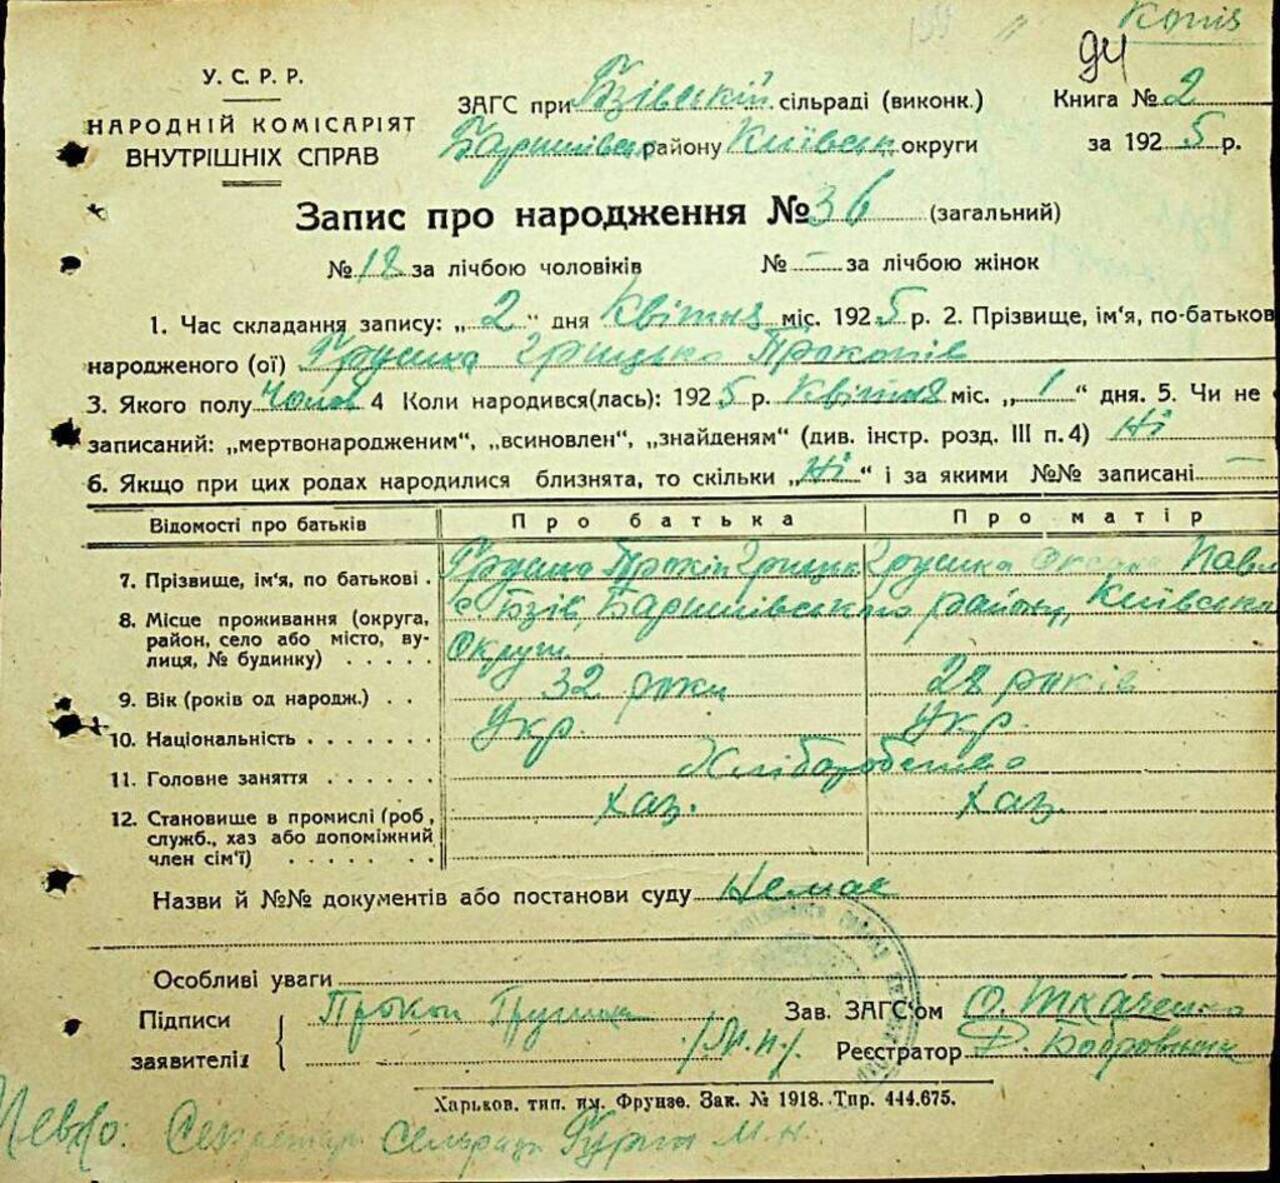 Копія
94
У. С. Р. Р.
НАРОДНІЙ КОМІСАРІЯТ
ВНУТРІШНІХ СПРАВ
ЗАГС при Бзівській сільраді (виконк.)
Баришівськ району Київськ округи
Книга № 2
за 1925 р.
Запис про народження № 36 (загальний)
№ 18 за лічбою чоловіків № — за лічбою жінок
1. Час складання запису: „2“ дня Квітня міс. 1925 р. 2. Прізвище, ім'я, по-батьков
народженого (ої) Грушка Грицько Прокопів
3. Якого полу Чолов 4 Коли народився(лась): 1925 р. Квітня міс. „1“ дня. 5. Чи не
записаний: „мертвонародженим“, „всиновлен“, „знайденям“ (див. інстр. розд. III п. 4) Ні
6. Якщо при цих родах народилися близнята, то скільки „Ні“ і за якими №№ записані —
Відомості про батьків Про батька Про матір
7. Прізвище, ім'я, по батькові. Грушка Прокіп Грицьк Грушка Оксана Павл
8. Місце проживання (округа, район, село або місто, вулиця, № будинку) с Бзів, Баришівського району, Київсько
Округи
9. Вік (років од народж.) . . 32 роки 28 років
10. Національність . . . . . . . Укр. Укр.
11. Головне заняття . . . . . . Хліборобство
12. Становище в промислі (роб, служб., хаз або допоміжний член сім'ї) . . . . . . . Хаз. Хаз.
Назви й №№ документів або постанови суду Немає
Особливі уваги
Підписи заявителів Прокоп Грушка /М.п./
Зав. ЗАГС'ом О. Ткаченко
Реєстратор Бобровник
Харьков. тип. им. Фрунзе. Зак. № 1918. Тпр. 444.675.
Певно: Секретар сельради М. Н.